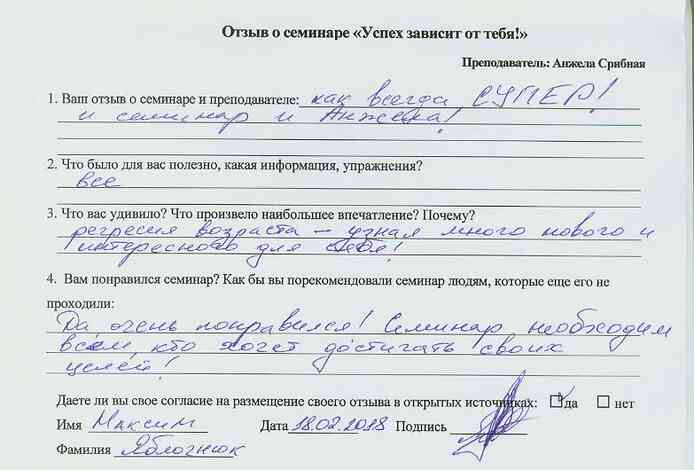 Отзыв о семинаре «Успех зависит от тебя!»
Преподаватель: Анжела Срибная
1. Ваш отзыв о семинаре и преподавателе: как всегда СУПЕР!
и семинар и Анжела!
2. Что было для вас полезно, какая информация, упражнения?
все
3. Что вас удивило? Что произвело наибольшее впечатление? Почему?
регресия возраста – узнал много нового и
интересного для себя!
4. Вам понравился семинар? Как бы вы порекомендовали семинар людям, которые еще его не
проходили:
Да, очень понравился! Семинар необходим
всем, кто хочет достигать своих
целей!
Даете ли вы свое согласие на размещение своего отзыва в открытых источниках: да нет
Имя Максим Дата 18.02.2018 Подпись
Фамилия Яблогнюк